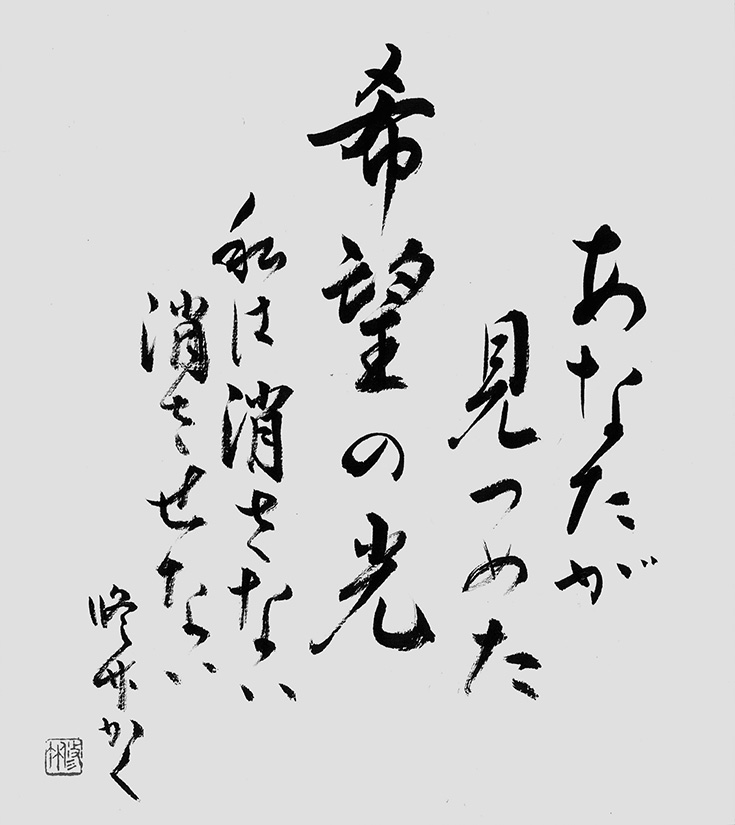 あなたが
見つめた
希望の光
私は消さない
消させない
修竹かく